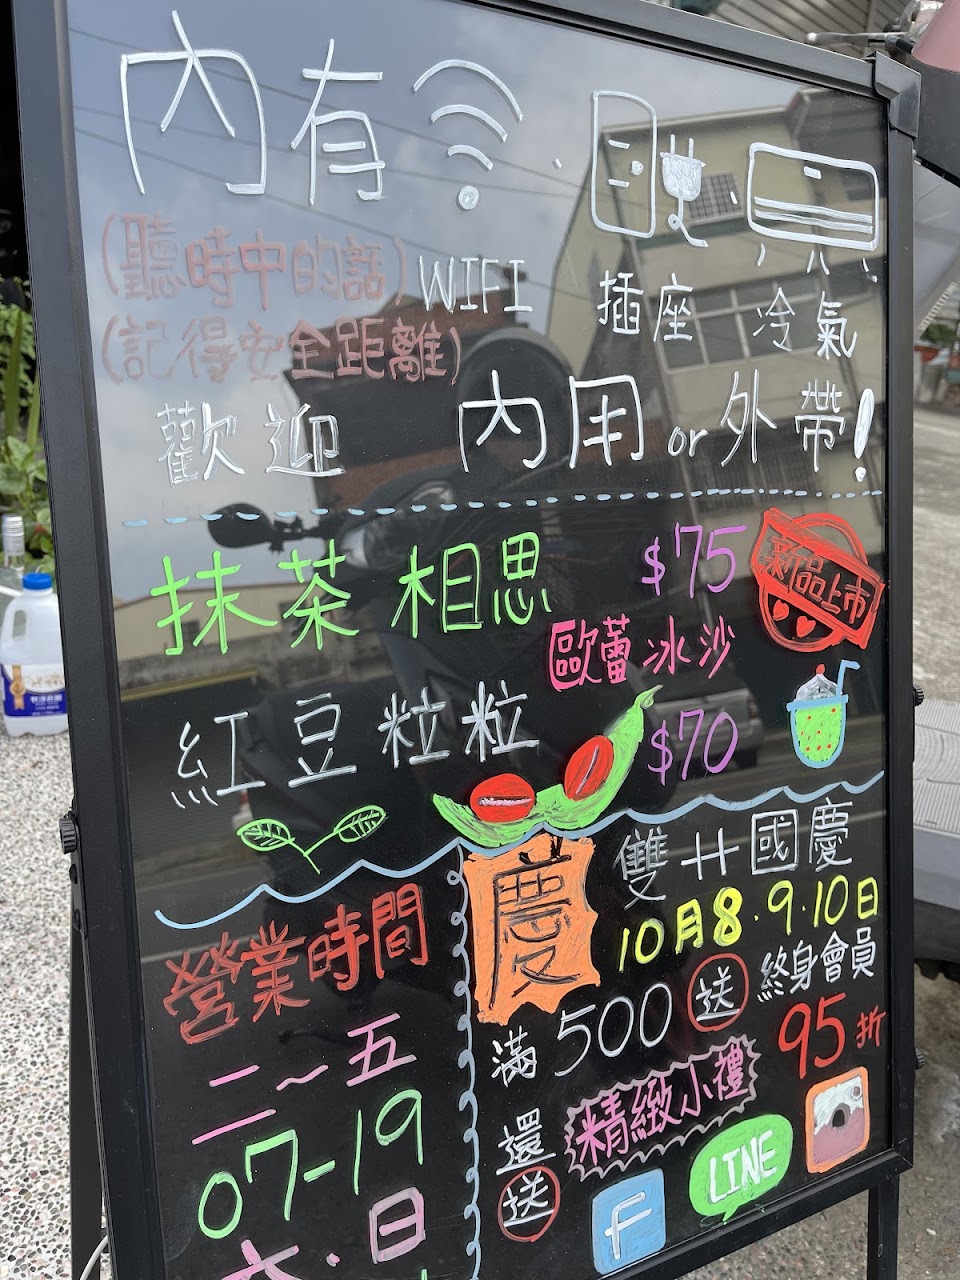 內有
(聽時中的話)
WIFI 插座 冷氣
(記得安全距離)
歡迎 內用 or 外帶!
抹茶相思 $75
新品上市
歐蕾 冰沙
紅豆粒粒 $70
慶
雙十國慶
10月8.9.10日
滿500送終身會員
95折
還送
精緻小禮
f LINE
營業時間
二~五
07-19
六.日